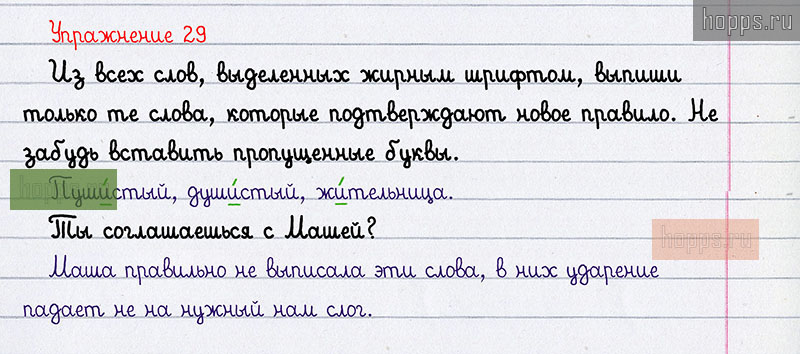 hopps.ru
Упражнение 29
Из всех слов, выделенных жирным шрифтом, выпиши
только те слова, которые подтверждают новое правило. Не
забудь вставить пропущенные буквы.
Пуши́стый, души́стый, жи́тельница.
Ты соглашаешься с Машей?
hopps.ru
Маша правильно не выписала эти слова, в них ударение
падает не на нужный нам слог.